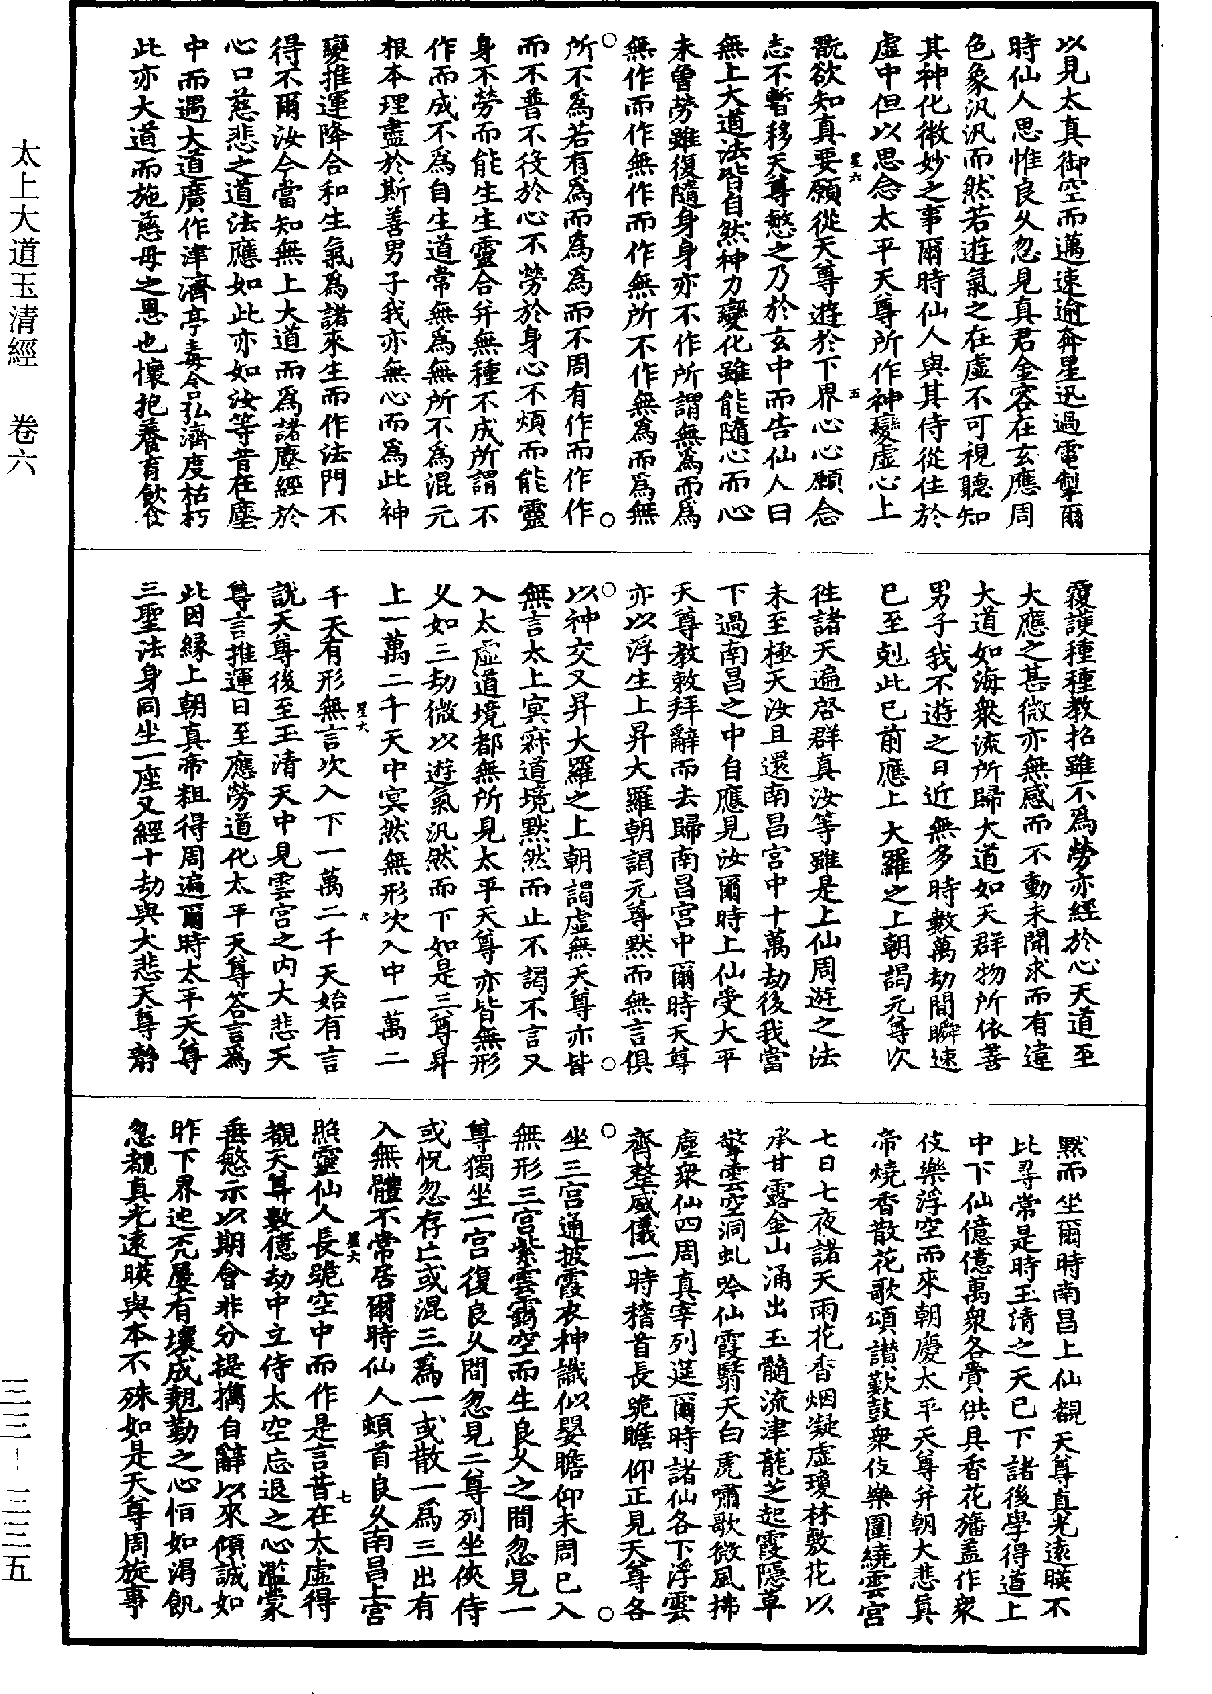 太上大道玉清經　卷六
以見太真御空而邁速逾奔星迅過電掣爾
時仙人思惟良久忽見真君金容在玄應周
色象汎汎而然若遊氣之在虛不可視聽知
其神化微妙之事爾時仙人與其侍從住於
虛中但以思念太平天尊所作神變虛心上
翫欲知真要願從天尊遊於下界心心願念
志不暫移天尊愍之乃於玄中而告仙人曰
無上大道法皆自然神力變化雖能隨心而心
未曾勞雖復隨身身亦不作所謂無為而為
無作而作無作而作無所不作無為而為無
所不為若有為而為為而不周有作而作作
而不普不役於心不勞於身心不煩而能靈
身不勞而能生生靈合并無種不成所謂不
作而成不為自生道常無為無所不為混元
根本理盡於斯善男子我亦無心而為此神
變推運降合和生氣為諸來生而作法門不
得不爾汝今當知無上大道而為諸塵經於
心口慈悲之道法應如此亦如汝等昔在塵
中而遇大道廣作津濟亭毒含弘濟度枯朽
此亦大道而施慈母之恩也懷抱養育飲食
覆護種種教招雖不為勞亦經於心天道至
大應之甚微亦無感而不動未開求而有違
大道如海衆流所歸大道如天群物所依善
男子我不遊之日近無多時數萬劫間瞬速
已至剋此已前應上大羅之上朝謁元尊次
往諸天遍啓群真汝等雖是上仙周遊之法
未至極天汝且還南昌宮中十萬劫後我當
下過南昌之中自應見汝爾時上仙受太平
天尊教敕拜辭而去歸南昌宮中爾時天尊
亦以浮生上昇大羅朝謁元尊默而無言俱
以神交又昇大羅之上朝謁虛無天尊亦皆
無言太上寞寂道境默然而止不謁不言又
入太虛道境都無所見太平天尊亦皆無形
又如三劫微以遊氣汎然而下如是三尊昇
上一萬二千天中寞然無形次入中一萬二
千天有形無言次入下一萬二千天始有言
說天尊後至玉清天中見雲宮之內大悲天
尊言推運日至應勞道化太平天尊答言為
此因緣上朝真帝粗得周遍爾時太平天尊
三聖法身同坐一座又經十劫與大悲天尊靜
默而坐爾時南昌上仙覩天尊真光遠暎不
比尋常是時玉清之天已下諸後學得道上
中下仙億億萬衆各賫供具香花旛蓋作衆
伎樂浮空而來朝慶太平天尊并朝大悲真
帝燒香散花歌頌讚歎鼓衆伎樂圍繞雲宮
七日七夜諸天雨花香烟凝虛瓊林敷花以
承甘露金山涌出玉髓流津龍芝起霞隱草
擎雲空洞虬吟仙霞翳天白虎嘯歌微風拂
塵衆仙四周真宰列筵爾時諸仙各下浮雲
齊整威儀一時稽首長跪瞻仰正見天尊各
坐三宮通披霞衣神識似嬰瞻仰未周已入
無形三宮紫雲靄空而生良久之間忽見一
尊獨坐一宮復良久間忽見二尊列坐俠侍
或怳忽存亡或混三為一或散一為三出有
入無體不常居爾時仙人頓首良久南昌上宮
照靈仙人長跪空中而作是言昔在太虛得
覩天尊數億劫中立侍太空忘退之心濫蒙
垂愍示以期會非分提攜自辭以來傾誠如
昨下界迚充屢有壞成翹勤之心怕如渴飢
忽覩真光遠暎與本不殊如是天尊周旋事
星六　五
星六　六
星六　七
三三－三三五